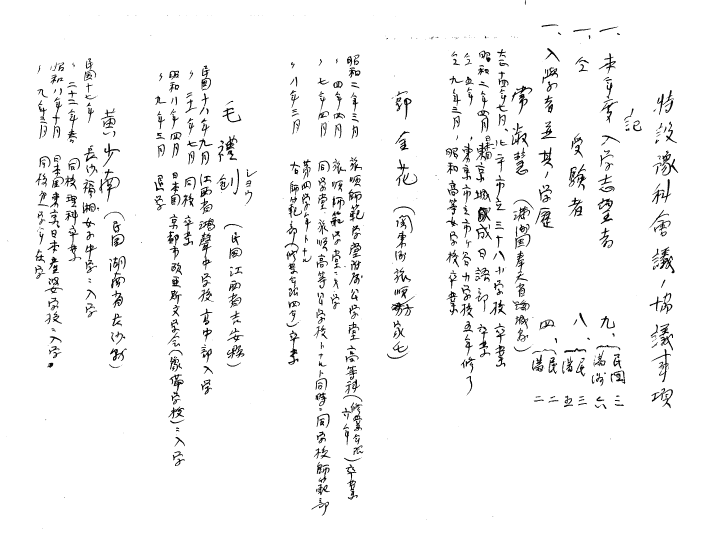 特設豫科會議ノ協議事項
記
一、本年度入学志望者 九、{民國 三 満洲 六
一、仝 受験者 八、{民 三 満 五
一、入学者並其ノ学歴 四、{民 二 満 二
常淑慧 (満洲國奉天省海城縣)
大正十四年七月、北平市立三十八小学校卒業
昭和二年四月 東京城成日語部卒業
仝 五年 東京市立市ヶ谷小学校五年修了
仝 九年三月、昭和高等女学校卒業
郭金花 (関東州旅順
昭和二年三月 旅順師範学堂附属公学堂高等科(修業年限六年)卒業
〃 四年四月 旅順師範学堂ニ入学
〃 七年四月 同学堂旅順高等公学校トナルト同時ニ同学校師範部
第四学年トナル
〃 八年三月 右師範部(修業年限四年)卒業
毛禮創 ショウ (民国江西省吉安縣)
民國十八年九月 江西省鴻聲中学校高中部入学
〃 二十一年七月 同校卒業
昭和八年四月 日本国京都市改亜斯文学会(豫備学校)ニ入学
〃 九年三月 退学
黄少南 (民国湖南省長沙縣)
民國十七年 長沙福湘女学中学ニ入学
〃 二十二年 同校理科卒業
昭和八年十月 日本国東京日本産婆学校ニ入学
〃 九年三月 同校